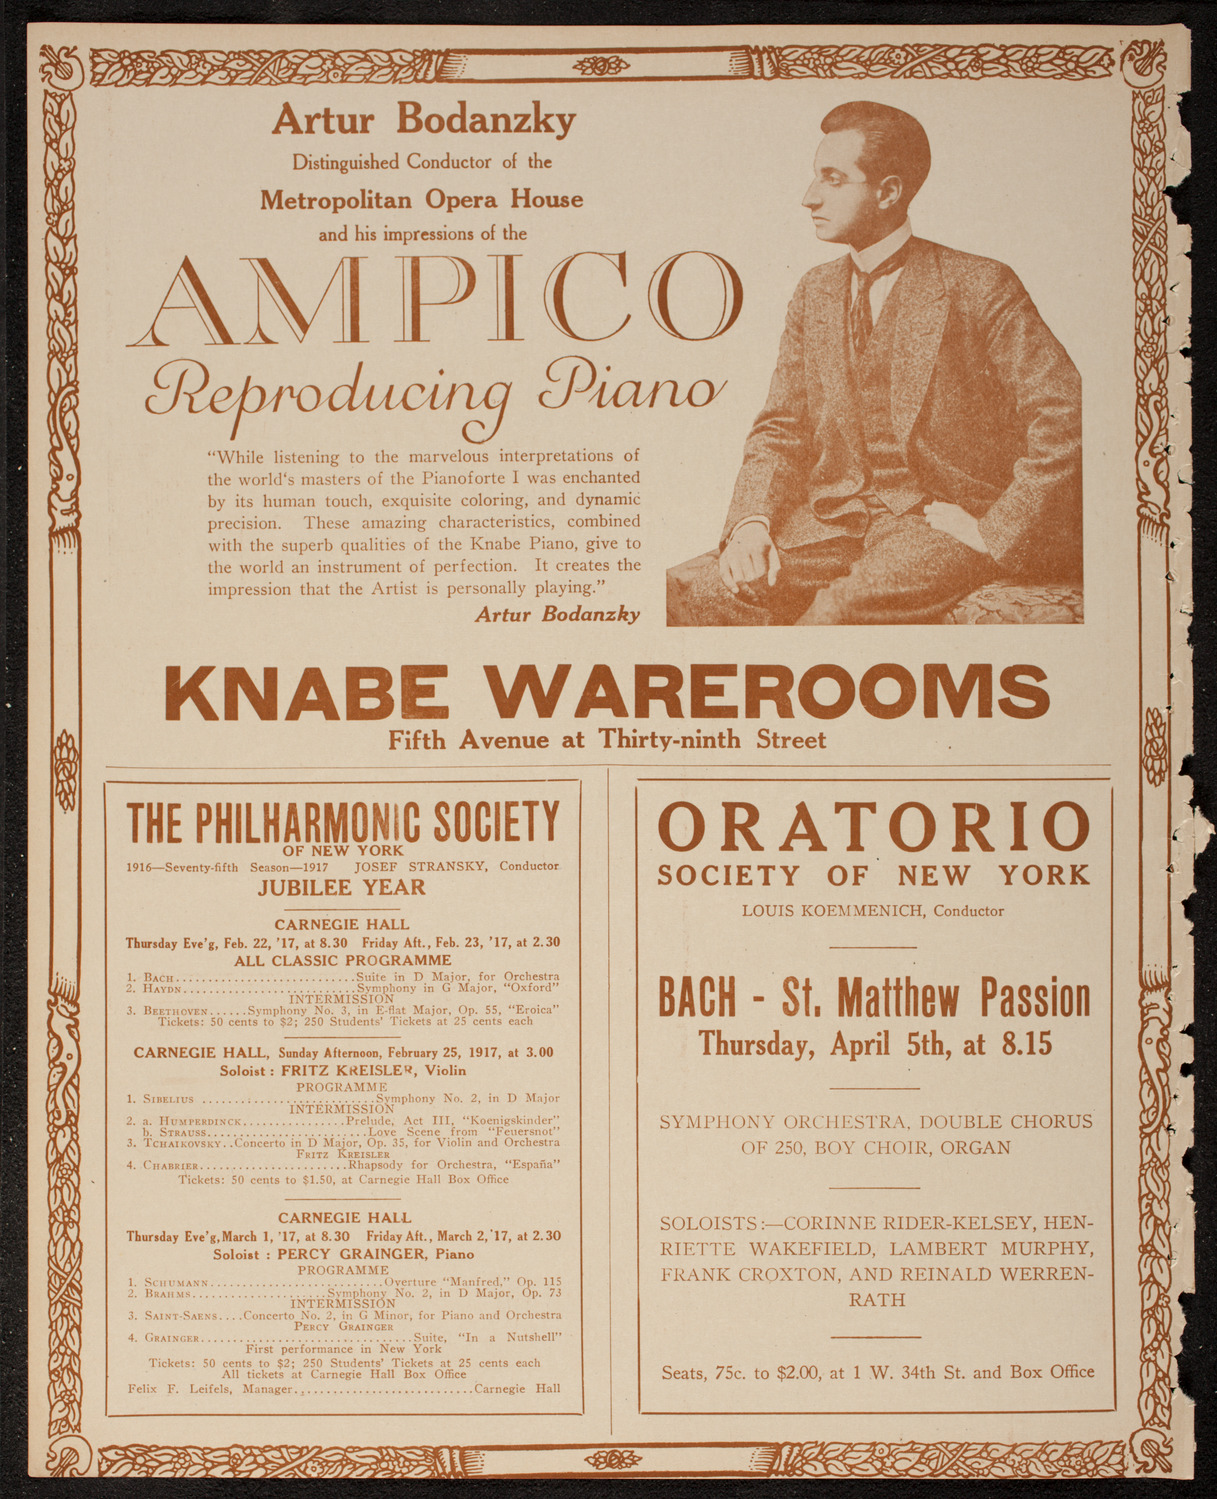 Artur Bodanzky
Distinguished Conductor of the
Metropolitan Opera House
and his impressions of the
AMPICO
Reproducing Piano
“While listening to the marvelous interpretations of
the world‘s masters of the Pianoforte I was enchanted
by its human touch, exquisite coloring, and dynamic
precision. These amazing characteristics, combined
with the superb qualities of the Knabe Piano, give to
the world an instrument of perfection. It creates the
impression that the Artist is personally playing.”
Artur Bodanzky
KNABE WAREROOMS
Fifth Avenue at Thirty-ninth Street
THE PHILHARMONIC SOCIETY
OF NEW YORK
1916—Seventy-fifth Season—1917 JOSEF STRANSKY, Conductor
JUBILEE YEAR
CARNEGIE HALL
Thursday Eve'g, Feb. 22, '17, at 8.30 Friday Aft., Feb. 23, '17, at 2.30
ALL CLASSIC PROGRAMME
1. BACH............................Suite in D Major, for Orchestra
2. HAYDN...........................Symphony in G Major, “Oxford”
INTERMISSION
3. BEETHOVEN......Symphony No. 3, in E-flat Major, Op. 55, “Eroica”
Tickets: 50 cents to $2; 250 Students' Tickets at 25 cents each
CARNEGIE HALL, Sunday Afternoon, February 25, 1917, at 3.00
Soloist : FRITZ KREISLER, Violin
PROGRAMME
1. SIBELIUS ...........................Symphony No. 2, in D Major
INTERMISSION
2. a. HUMPERDINCK................Prelude, Act III, “Koenigskinder”
b. STRAUSS.........................Love Scene from “Feuersnot”
3. TCHAIKOVSKY..Concerto in D Major, Op. 35, for Violin and Orchestra
FRITZ KREISLER
4. CHABRIER.......................Rhapsody for Orchestra, “España”
Tickets: 50 cents to $1.50, at Carnegie Hall Box Office
CARNEGIE HALL
Thursday Eve'g, March 1, '17, at 8.30 Friday Aft., March 2, '17, at 2.30
Soloist : PERCY GRAINGER, Piano
PROGRAMME
1. SCHUMANN...........................Overture “Manfred,” Op. 115
2. BRAHMS.....................Symphony No. 2, in D Major, Op. 73
INTERMISSION
3. SAINT-SAENS....Concerto No. 2, in G Minor, for Piano and Orchestra
PERCY GRAINGER
4. GRAINGER.................................Suite, “In a Nutshell”
First performance in New York
Tickets: 50 cents to $2; 250 Students' Tickets at 25 cents each
All tickets at Carnegie Hall Box Office
Felix F. Leifels, Manager............................Carnegie Hall
ORATORIO
SOCIETY OF NEW YORK
LOUIS KOEMMENICH, Conductor
BACH - St. Matthew Passion
Thursday, April 5th, at 8.15
SYMPHONY ORCHESTRA, DOUBLE CHORUS
OF 250, BOY CHOIR, ORGAN
SOLOISTS:—CORINNE RIDER-KELSEY, HEN-
RIETTE WAKEFIELD, LAMBERT MURPHY,
FRANK CROXTON, AND REINALD WERREN-
RATH
Seats, 75c. to $2.00, at 1 W. 34th St. and Box Office